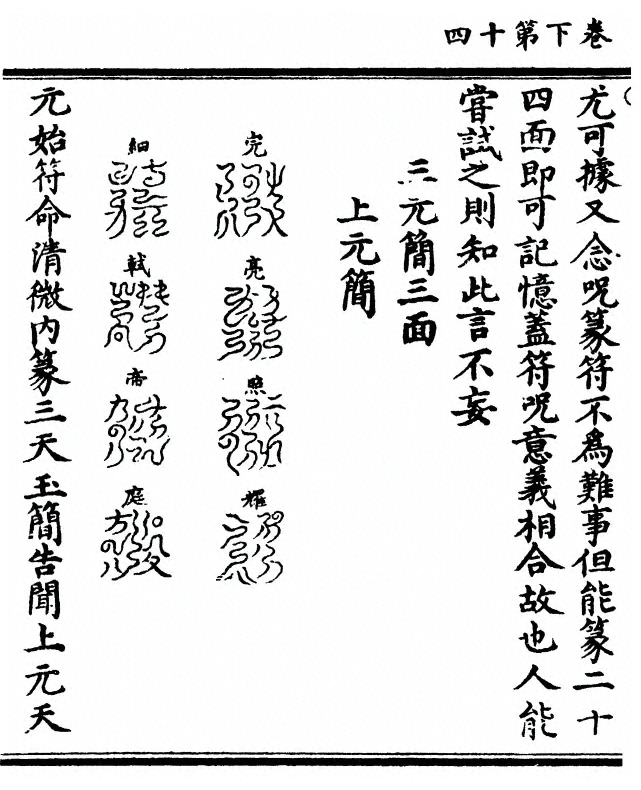 卷下第十四
尤可據又念呪篆符不爲難事但能篆二十
四面即可記憶蓋符呪意義相合故也人能
嘗試之則知此言不妄
三元簡三面
上元簡
完亮照耀
細軾帝庭
元始符命清微內篆三天玉簡告聞上元天